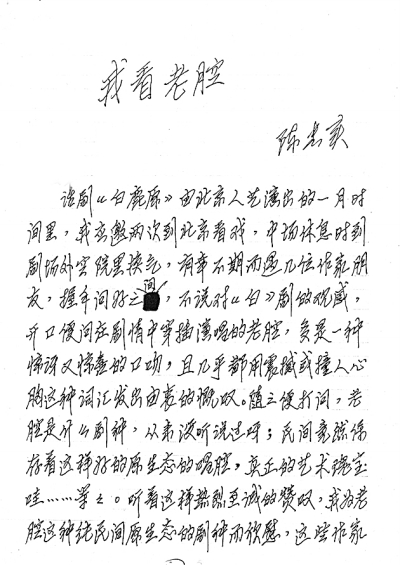 我看老腔
陈忠实
话剧《白鹿原》由北京人艺演出的一月时
间里，我应邀两次到北京看戏，中场休息时到
剧场外空院里换气，有幸不期而遇几位作家朋
友，握手问好之间，不说对《白》剧的观感，
开口便问在剧情中穿插演唱的老腔，负是一种
惊讶又惊喜的口吻，且几乎都用震撼或撞人心
胸这种词汇发出由衷的慨叹。随之便打问，老
腔是什么剧种，从来没听说过呀；民间竟然保
存着这样好的原生态的唱腔，真正的艺术瑰宝
哇……等等。听着这样热烈至诚的赞叹，我为老
腔这种纯民间原生态的剧种而欣慰，这些作家